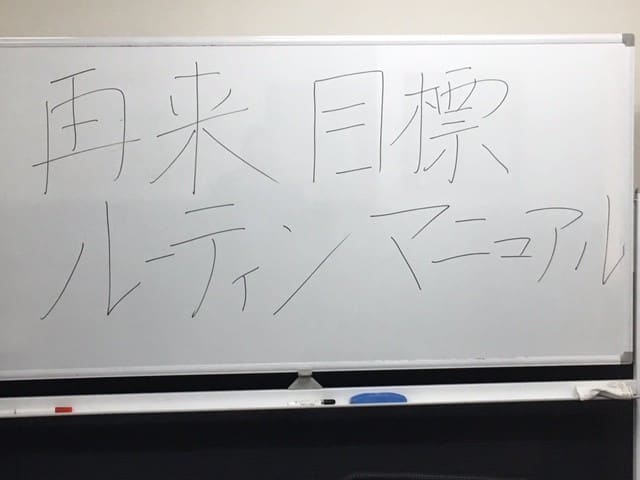 再来 目標
ルーティンマニュアル